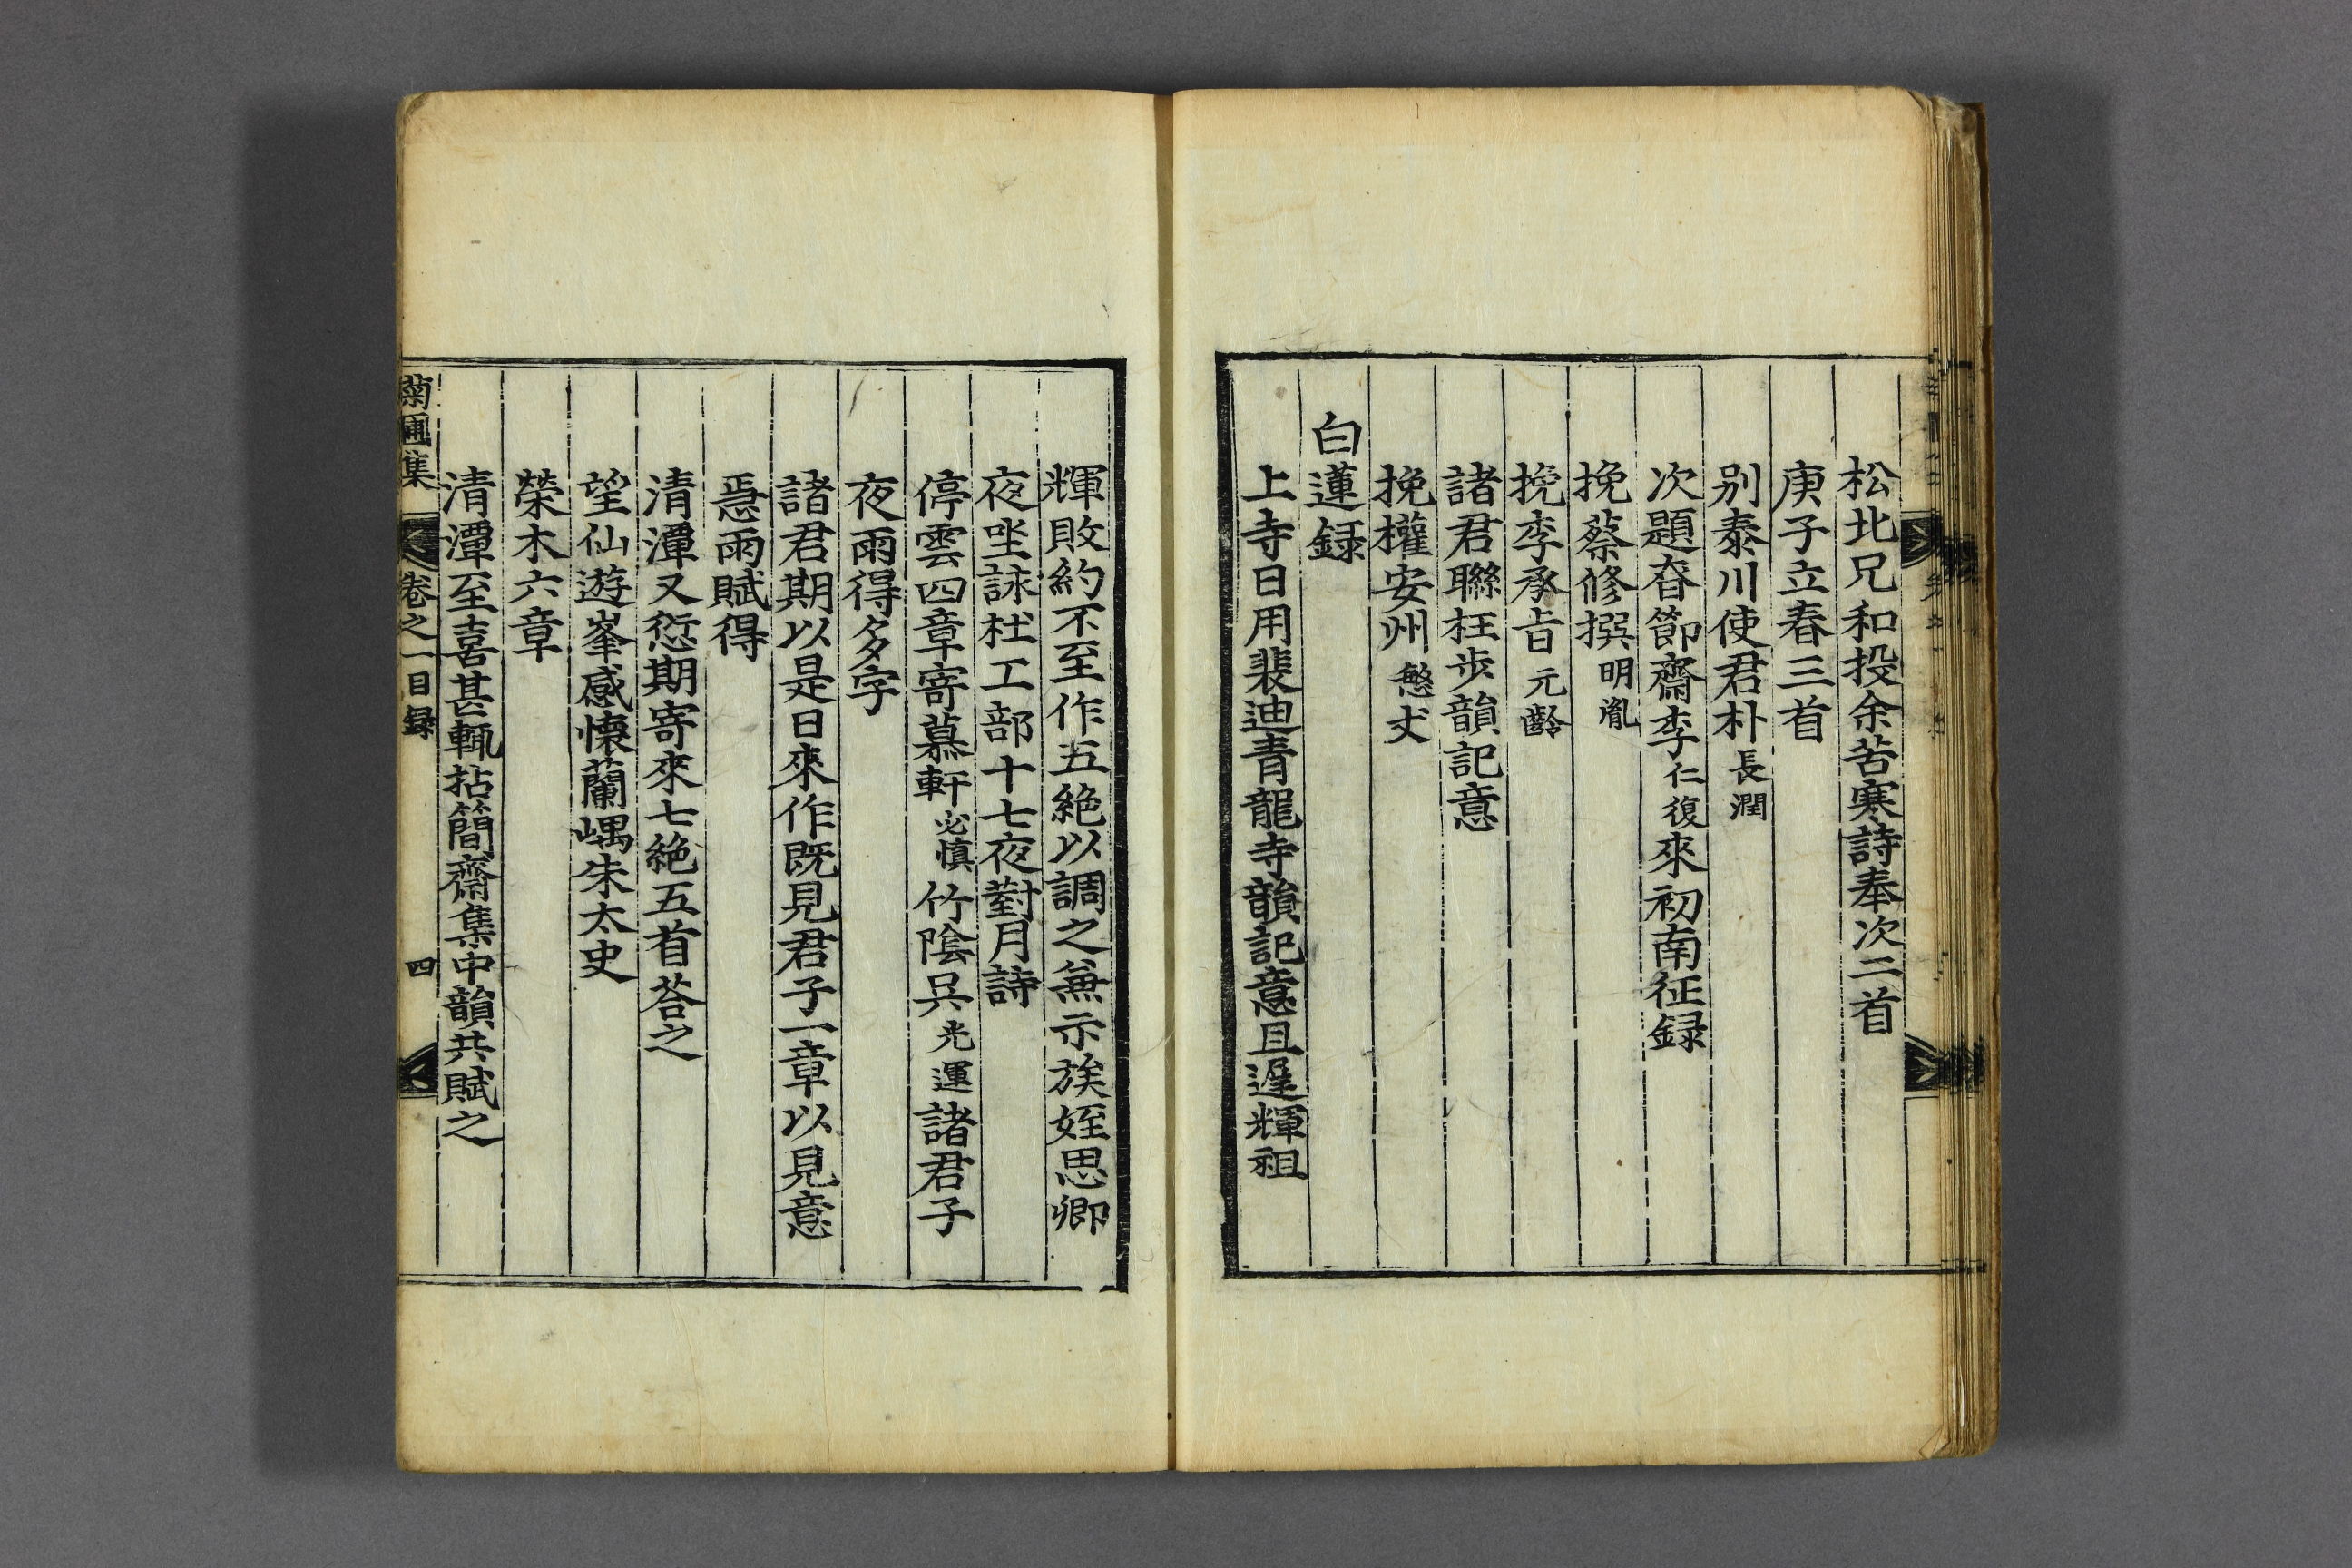 松北兄和投余苦寒詩奉次二首
庚子立春三首
別泰川使君朴長潤
次題昚節齋李仁復來初南征録
挽蔡修撰明胤
挽李承旨元齡
諸君聯枉步韻記意
挽權安州慜丈
白蓮録
上寺日用裴迪青龍寺韻記意且遲輝祖
輝敗約不至作五絶以調之兼示族姪思卿
夜坐詠杜工部十七夜對月詩
停雲四章寄慕軒必慎竹陰吳光運諸君子
夜雨得多字
諸君期以是日來作既見君子一章以見意
惡雨賦得
清潭又愆期寄來七絶五首荅之
望仙遊峯感懷蘭嵎朱太史
榮木六章
清潭至喜甚輒拈簡齋集中韻共賦之
菊圃集 卷之一目録 四